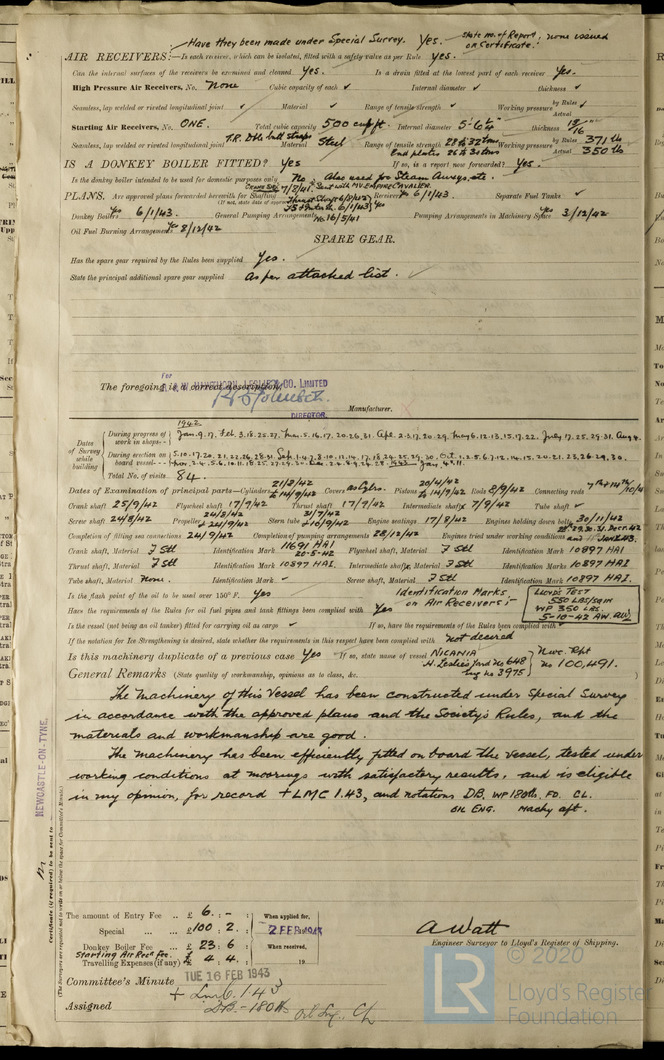 Have they been made under Special Survey. Yes. State no. of Report, none issued on Certificate.
AIR RECEIVERS:—Is each receiver, which can be isolated, fitted with a safety valve as per Rule Yes.
Can the internal surfaces of the receivers be examined and cleaned Yes. Is a drain fitted at the lowest part of each receiver Yes.
High Pressure Air Receivers, No. None Cubic capacity of each ✓ Internal diameter ✓ thickness ✓
Seamless, lap welded or riveted longitudinal joint ✓ Material ✓ Range of tensile strength ✓ Working pressure by Rules ✓ Actual
Starting Air Receivers, No. ONE. Total cubic capacity 500 cu ft. Internal diameter thickness
Seamless, lap welded or riveted longitudinal joint T.R. Dble butt straps Material Steel Range of tensile strength 28 to 32 tons End plates 26 to 30 tons Working pressure by Rules 371 lbs Actual 350 lbs
IS A DONKEY BOILER FITTED? Yes If so, is a report now forwarded? Yes.
Is the donkey boiler intended to be used for domestic purposes only No. Also used for Steam Auxys, etc.
PLANS. Are approved plans forwarded herewith for Shafting 7/8/41. Sent with MV. EMPIRE CAVALIER. Receivers Yes 6/1/43. Separate Fuel Tanks ✓
Donkey Boilers Yes 6/1/43. General Pumping Arrangements No. 16/5/41 Pumping Arrangements in Machinery Space Yes 3/12/42
Oil Fuel Burning Arrangements Yes 8/12/42
SPARE GEAR.
Has the spare gear required by the Rules been supplied Yes.
State the principal additional spare gear supplied As per attached list.
The foregoing is a correct description,
For R. & W. HAWTHORN, LESLIE & CO. LIMITED
DIRECTOR. Manufacturer.
Dates of Survey while building
During progress of work in shops-- 1942 Jan. 9. 17, Feb. 3. 18. 25. 27, Mar. 5. 16. 17. 20. 26. 31, Apr. 2. 3. 17. 20. 29, May 6. 12. 13. 15. 17. 22, July 17. 25. 29. 31, Aug 4.
During erection on board vessel---
Total No. of visits 84.
Dates of Examination of principal parts—Cylinders 21/8/42 & 14/9/42 Covers as Cylrs. Pistons 20/4/42 & 14/9/42 Rods 8/9/42 Connecting rods
Crank shaft 25/9/42 Flywheel shaft 17/9/42 Thrust shaft 17/9/42 Intermediate shafts 7/9/42 Tube shaft ✓
Screw shaft 24/8/42 Propeller 24/8/42 & 24/9/42 Stern tube 31/7/42 & 10/9/42 Engine seatings 17/8/42 Engines holding down bolts 30/11/42
Completion of fitting sea connections 24/9/42 Completion of pumping arrangements 28/12/42 Engines tried under working conditions
Crank shaft, Material F Stl Identification Mark 11691 HAI 20-5-42 Flywheel shaft, Material F Stl Identification Mark 10897 HAI
Thrust shaft, Material F Stl Identification Mark 10897 HAI. Intermediate shafts, Material F Stl Identification Marks 10897 HAI
Tube shaft, Material None. Identification Mark ✓ Screw shaft, Material F Stl Identification Mark 10897 HAI.
Is the flash point of the oil to be used over 150° F. Yes Identification Marks on Air Receivers:—
LLOYDS TEST
550 LBS/SQ IN
WP 350 LBS.
5-10-42 AW. AW.
Have the requirements of the Rules for oil fuel pipes and tank fittings been complied with Yes
Is the vessel (not being an oil tanker) fitted for carrying oil as cargo ✓ If so, have the requirements of the Rules been complied with ✓
If the notation for Ice Strengthening is desired, state whether the requirements in this respect have been complied with not desired
Is this machinery duplicate of a previous case Yes If so, state name of vessel NICANIA H. Leslie's Yard No 648 Eng No 3975 } Nwc. Rpt No 100,491.
General Remarks (State quality of workmanship, opinions as to class, &c.
The Machinery of this Vessel has been constructed under Special Survey
in accordance with the approved plans and the Society's Rules, and the
materials and workmanship are good.
The Machinery has been efficiently fitted on board the vessel, tested under
working conditions at moorings with satisfactory results, and is eligible
in my opinion, for record + LMC 1.43, and notations DB. WP 180 lb. FD. CL.
OIL ENG. Machy aft.
NEWCASTLE-ON-TYNE.
Certificate (if required) to be sent to
(The Surveyors are requested not to write on or below the space for Committee's Minute.)
The amount of Entry Fee .. £ 6 : - : When applied for,
Special ... £100 : 2 : 2 FEB 1943
Donkey Boiler Fee .. £ 23 : 6 When received,
Starting Air Recr Fee.
Travelling Expenses (if any) £ 4 : 4 : 19
A Watt
Engineer Surveyor to Lloyd's Register of Shipping.
Committee's Minute TUE 16 FEB 1943
Assigned + Lmc. 1.43
DB - 180 lb Oil Eng. CL
© 2020
LR Lloyd's Register Foundation